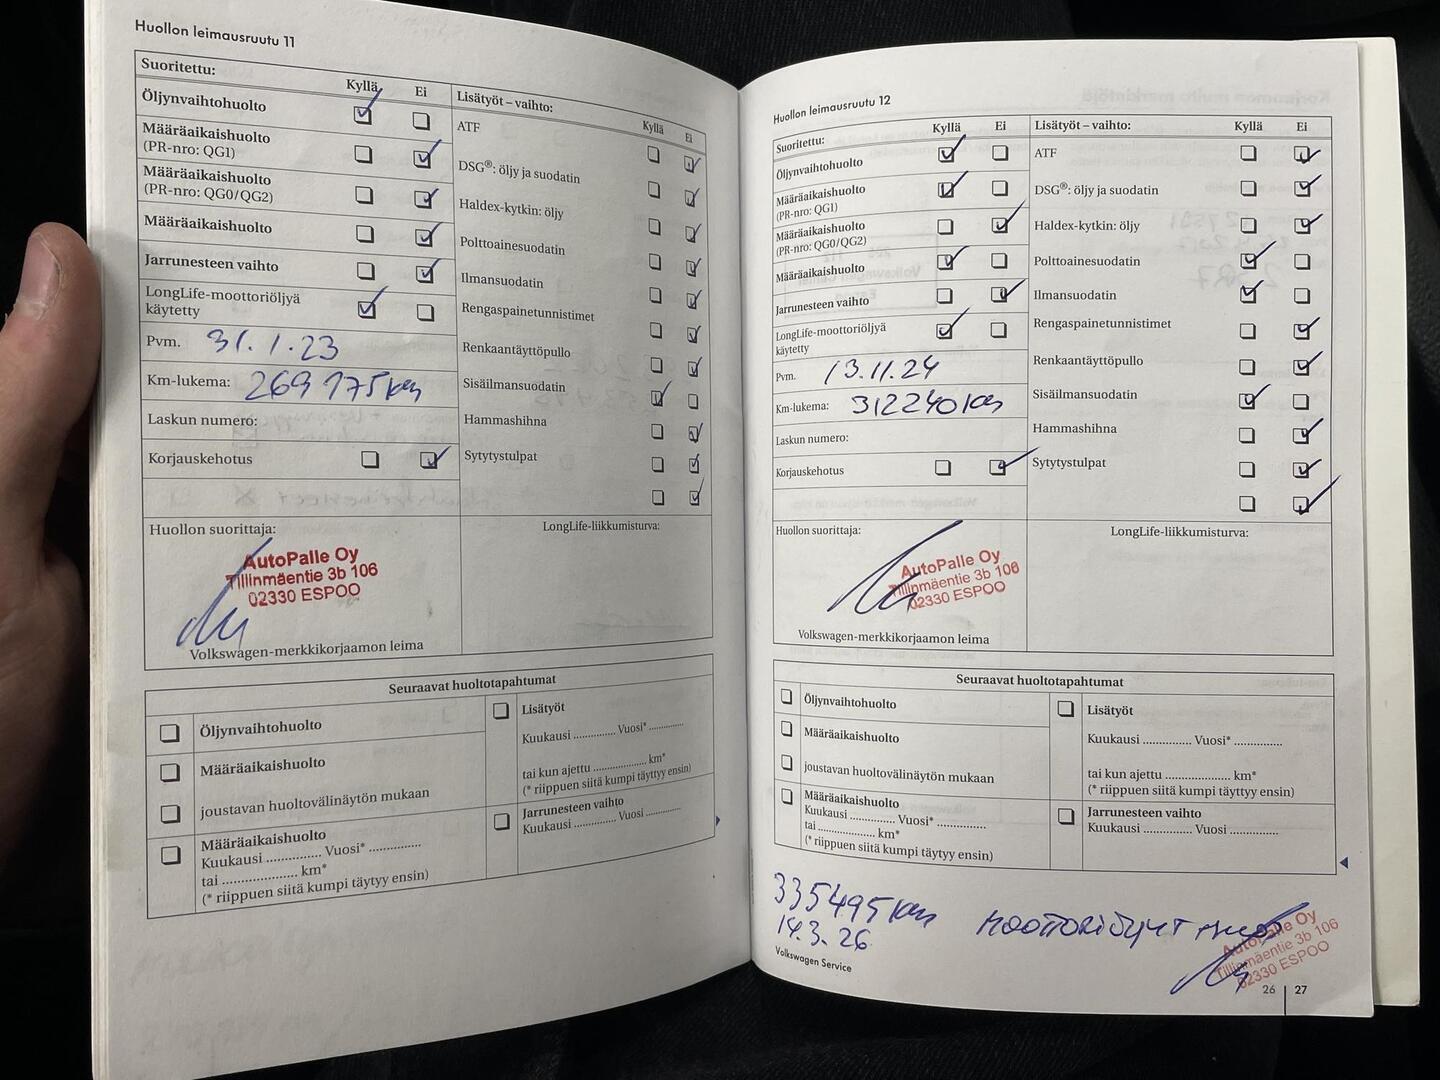 Huollon leimausruutu 11
Suoritettu:
Kyllä
Ei
Öljynvaihtohuolto
Määräaikaishuolto
(PR-nro: QG1)
Määräaikaishuolto
(PR-nro: QG0/QG2)
Määräaikaishuolto
Jarrunesteen vaihto
LongLife-moottoriöljyä
käytetty
Pvm. 31.1.23
Km-lukema: 269775km
Laskun numero:
Korjauskehotus
Lisätyöt – vaihto:
Kyllä
Ei
ATF
DSG®: öljy ja suodatin
Haldex-kytkin: öljy
Polttoainesuodatin
Ilmansuodatin
Rengaspainetunnistimet
Renkaantäyttöpullo
Sisäilmansuodatin
Hammashihna
Sytytystulpat
Huollon suorittaja:
AutoPalle Oy
Tillinmäentie 3b 106
02330 ESPOO
Volkswagen-merkkikorjaamon leima
LongLife-liikkumisturva:
Seuraavat huoltotapahtumat
Öljynvaihtohuolto
Määräaikaishuolto
joustavan huoltovälinäytön mukaan
Määräaikaishuolto
Kuukausi ............... Vuosi* ..............
tai .................... km*
(* riippuen siitä kumpi täytyy ensin)
Lisätyöt
Kuukausi ............ Vuosi* ..............
tai kun ajettu ............... km*
(* riippuen siitä kumpi täyttyy ensin)
Jarrunesteen vaihto
Kuukausi ............ Vuosi ..............
Huollon leimausruutu 12
Suoritettu:
Kyllä
Ei
Öljynvaihtohuolto
Määräaikaishuolto
(PR-nro: QG1)
Määräaikaishuolto
(PR-nro: QG0/QG2)
Määräaikaishuolto
Jarrunesteen vaihto
LongLife-moottoriöljyä
käytetty
Pvm. 13.11.24
Km-lukema: 312240km
Laskun numero:
Korjauskehotus
Lisätyöt – vaihto:
Kyllä
Ei
ATF
DSG®: öljy ja suodatin
Haldex-kytkin: öljy
Polttoainesuodatin
Ilmansuodatin
Rengaspainetunnistimet
Renkaantäyttöpullo
Sisäilmansuodatin
Hammashihna
Sytytystulpat
Huollon suorittaja:
AutoPalle Oy
Tillinmäentie 3b 106
02330 ESPOO
Volkswagen-merkkikorjaamon leima
LongLife-liikkumisturva:
Seuraavat huoltotapahtumat
Öljynvaihtohuolto
Määräaikaishuolto
joustavan huoltovälinäytön mukaan
Määräaikaishuolto
Kuukausi ............... Vuosi* ..............
tai .................... km*
(* riippuen siitä kumpi täytyy ensin)
Lisätyöt
Kuukausi ............... Vuosi* ..............
tai kun ajettu .................. km*
(* riippuen siitä kumpi täyttyy ensin)
Jarrunesteen vaihto
Kuukausi ............... Vuosi ..............
335495km
14.3.26
AutoPalle Oy
Tillinmäentie 3b 106
02330 ESPOO
Volkswagen Service
26 | 27